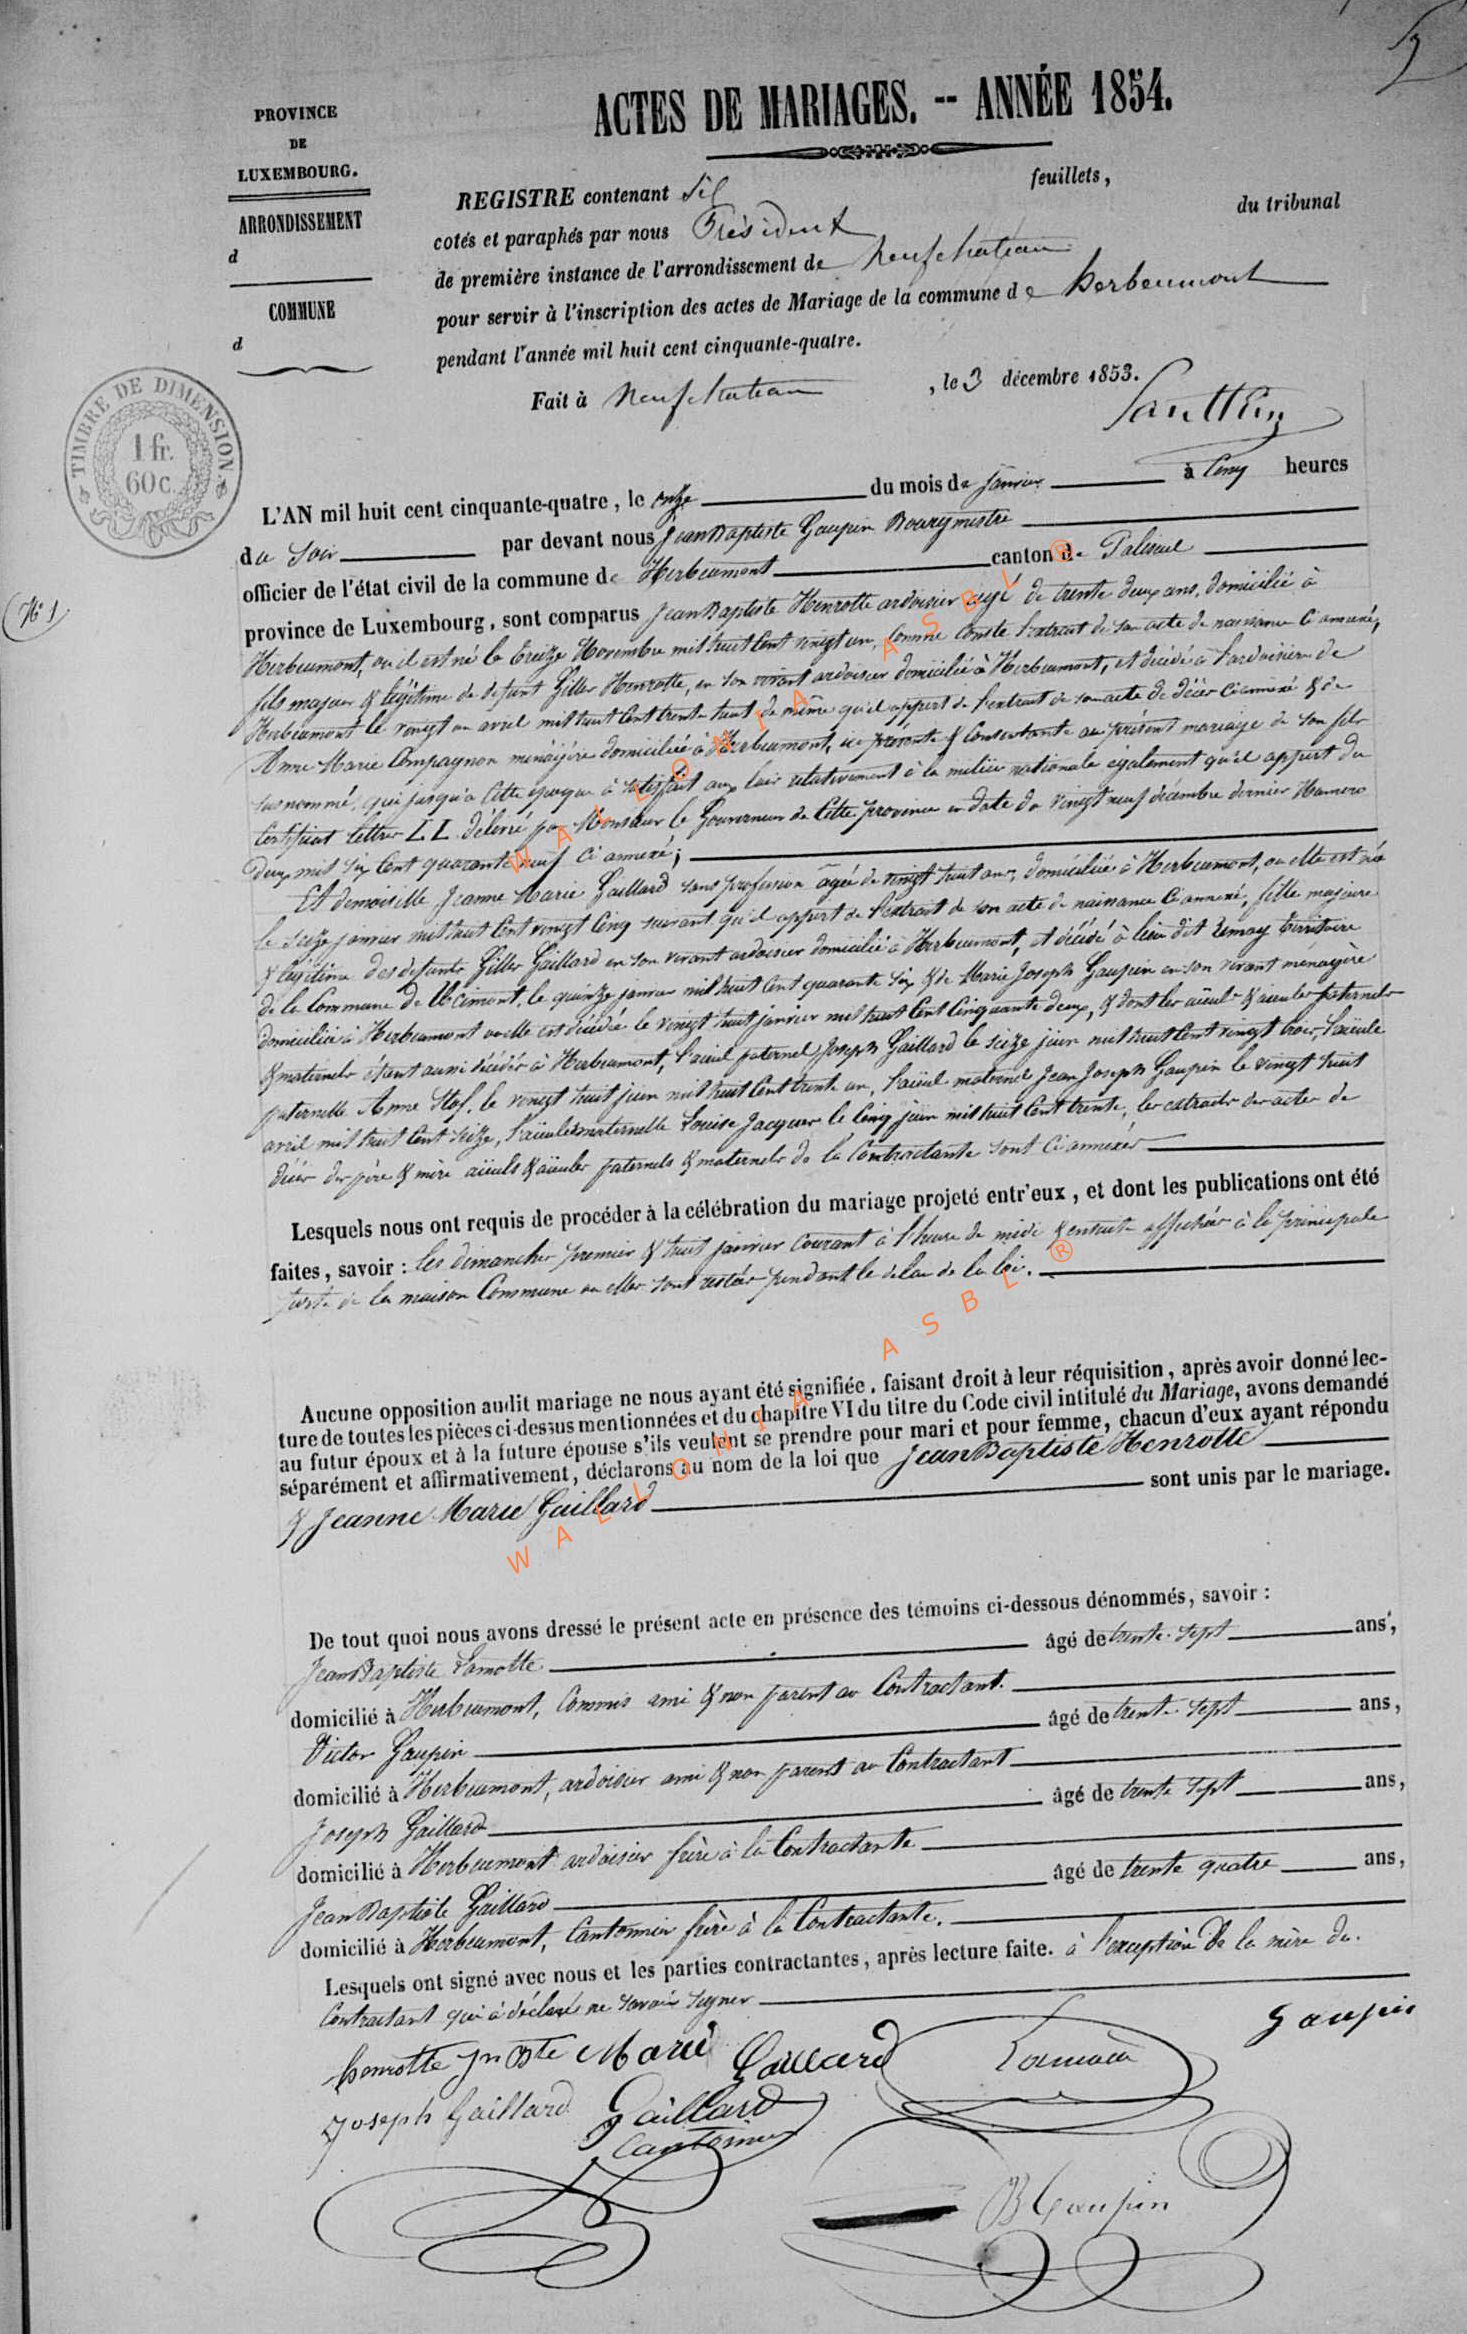 ACTES DE MARIAGES. -- ANNÉE 1854.
PROVINCE
DE
LUXEMBOURG.
ARRONDISSEMENT
d
COMMUNE
d
REGISTRE contenant six feuillets,
cotés et paraphés par nous Président du tribunal
de première instance de l'arrondissement de Neufchateau
pour servir à l'inscription des actes de Mariage de la commune de herbeumont
pendant l'année mil huit cent cinquante-quatre.
Fait à Neufchateau , le 3 décembre 1853.
TIMBRE DE DIMENSION
1 fr.
60 c.
N° 1
L'AN mil huit cent cinquante-quatre, le onze du mois de janvier à Cinq heures
du Soir par devant nous Jean Baptiste Gaupin Bourgmestre
officier de l'état civil de la commune de Herbeumont canton de Paliseul
province de Luxembourg, sont comparus Jean Baptiste Henrotte ardoisier agé de trente deux ans, domicilié à
Herbeumont, ou il est né le treize Novembre mil huit Cent vingt un, Comme Conste l'extrait de son acte de naissance Ci annexé,
fils majeur & légitime de defunt Gilles Henrotte, en son vivant ardoisier domicilié à Herbeumont, et décédé à l'ardoisière de
Herbeumont le vingt un avril mil huit Cent trente huit de même qu'il appert de l'extrait de son acte de décès Ci annexé & de
Anne Marie Compagnon ménagère domiciliée à Herbeumont, ici présente & Consentante au présent mariage de son fils
susnommé, qui jusqu'à Cette époque à satisfait aux lois relativement à la milice nationale également qu'il appert du
Certificat lettres L L délivré par Monsieur le Gouverneur de Cette province en date du vingt neuf décembre dernier Numero
deux mil six Cent quarante neuf Ci annexé;
Et demoiselle Jeanne Marie Gaillard sans profession âgée de vingt huit ans, domiciliée à Herbeumont, ou elle est née
le seize janvier mil huit Cent vingt Cinq suivant qu'il appert de l'extrait de son acte de naissance Ci annexé, fille majeure
& légitime des defunts Gilles Gaillard en son vivant ardoisier domicilié à Herbeumont, et décédé à lieu dit territoire
de la Commune de le quinze janvier mil huit Cent quarante six & de Marie Joseph Gaupin en son vivant ménagère
domiciliée à Herbeumont ou elle est décédée le vingt huit janvier mil huit Cent Cinquante deux, & dont les aïeuls & aïeules paternels
& maternels étant aussi décédés à Herbeumont, l'aïeul paternel Joseph Gaillard le seize juin mil huit Cent vingt trois, l'aïeule
paternelle Anne le vingt huit juin mil huit Cent trente un, l'aïeul maternel Jean Joseph Gaupin le vingt huit
avril mil huit Cent seize, l'aïeule maternelle Louise Jacques le Cinq juin mil huit Cent trente, les extraits des actes de
décès des père & mère aïeuls & aïeules paternels & maternels de la Contractante sont Ci annexés
Lesquels nous ont requis de procéder à la célébration du mariage projeté entr'eux, et dont les publications ont été
faites, savoir : les dimanches premier & huit janvier Courant à l'heure de midi & ensuite affichées à la principale
porte de la maison Commune ou elles sont restées pendant le délai de la loi.
Aucune opposition audit mariage ne nous ayant été signifiée, faisant droit à leur réquisition, après avoir donné lec-
ture de toutes les pièces ci-dessus mentionnées et du chapitre VI du titre du Code civil intitulé du Mariage, avons demandé
au futur époux et à la future épouse s'ils veulent se prendre pour mari et pour femme, chacun d'eux ayant répondu
séparément et affirmativement, déclarons au nom de la loi que Jean Baptiste Henrotte
& Jeanne Marie Gaillard sont unis par le mariage.
De tout quoi nous avons dressé le présent acte en présence des témoins ci-dessous dénommés, savoir :
Jean Baptiste Lamotte âgé de trente-sept ans,
domicilié à Herbeumont, Commis ami & non parent au Contractant.
Victor Gaupin âgé de trente-sept ans,
domicilié à Herbeumont, ardoisier ami & non parent au Contractant
Joseph Gaillard âgé de trente sept ans,
domicilié à Herbeumont ardoisier frère à la Contractante
Jean Baptiste Gaillard âgé de trente quatre ans,
domicilié à Herbeumont, Cantonnier frère à la Contractante.
Lesquels ont signé avec nous et les parties contractantes, après lecture faite. à l'exception de la mère du
Contractant qui à déclaré ne savoir signer
henrotte jn Bte Marie Gaillard Lamotte Gaupin
Joseph Gaillard Gaillard
Cantonnier
JB Gaupin
WALLONIA ASBL ®
WALLONIA ASBL ®